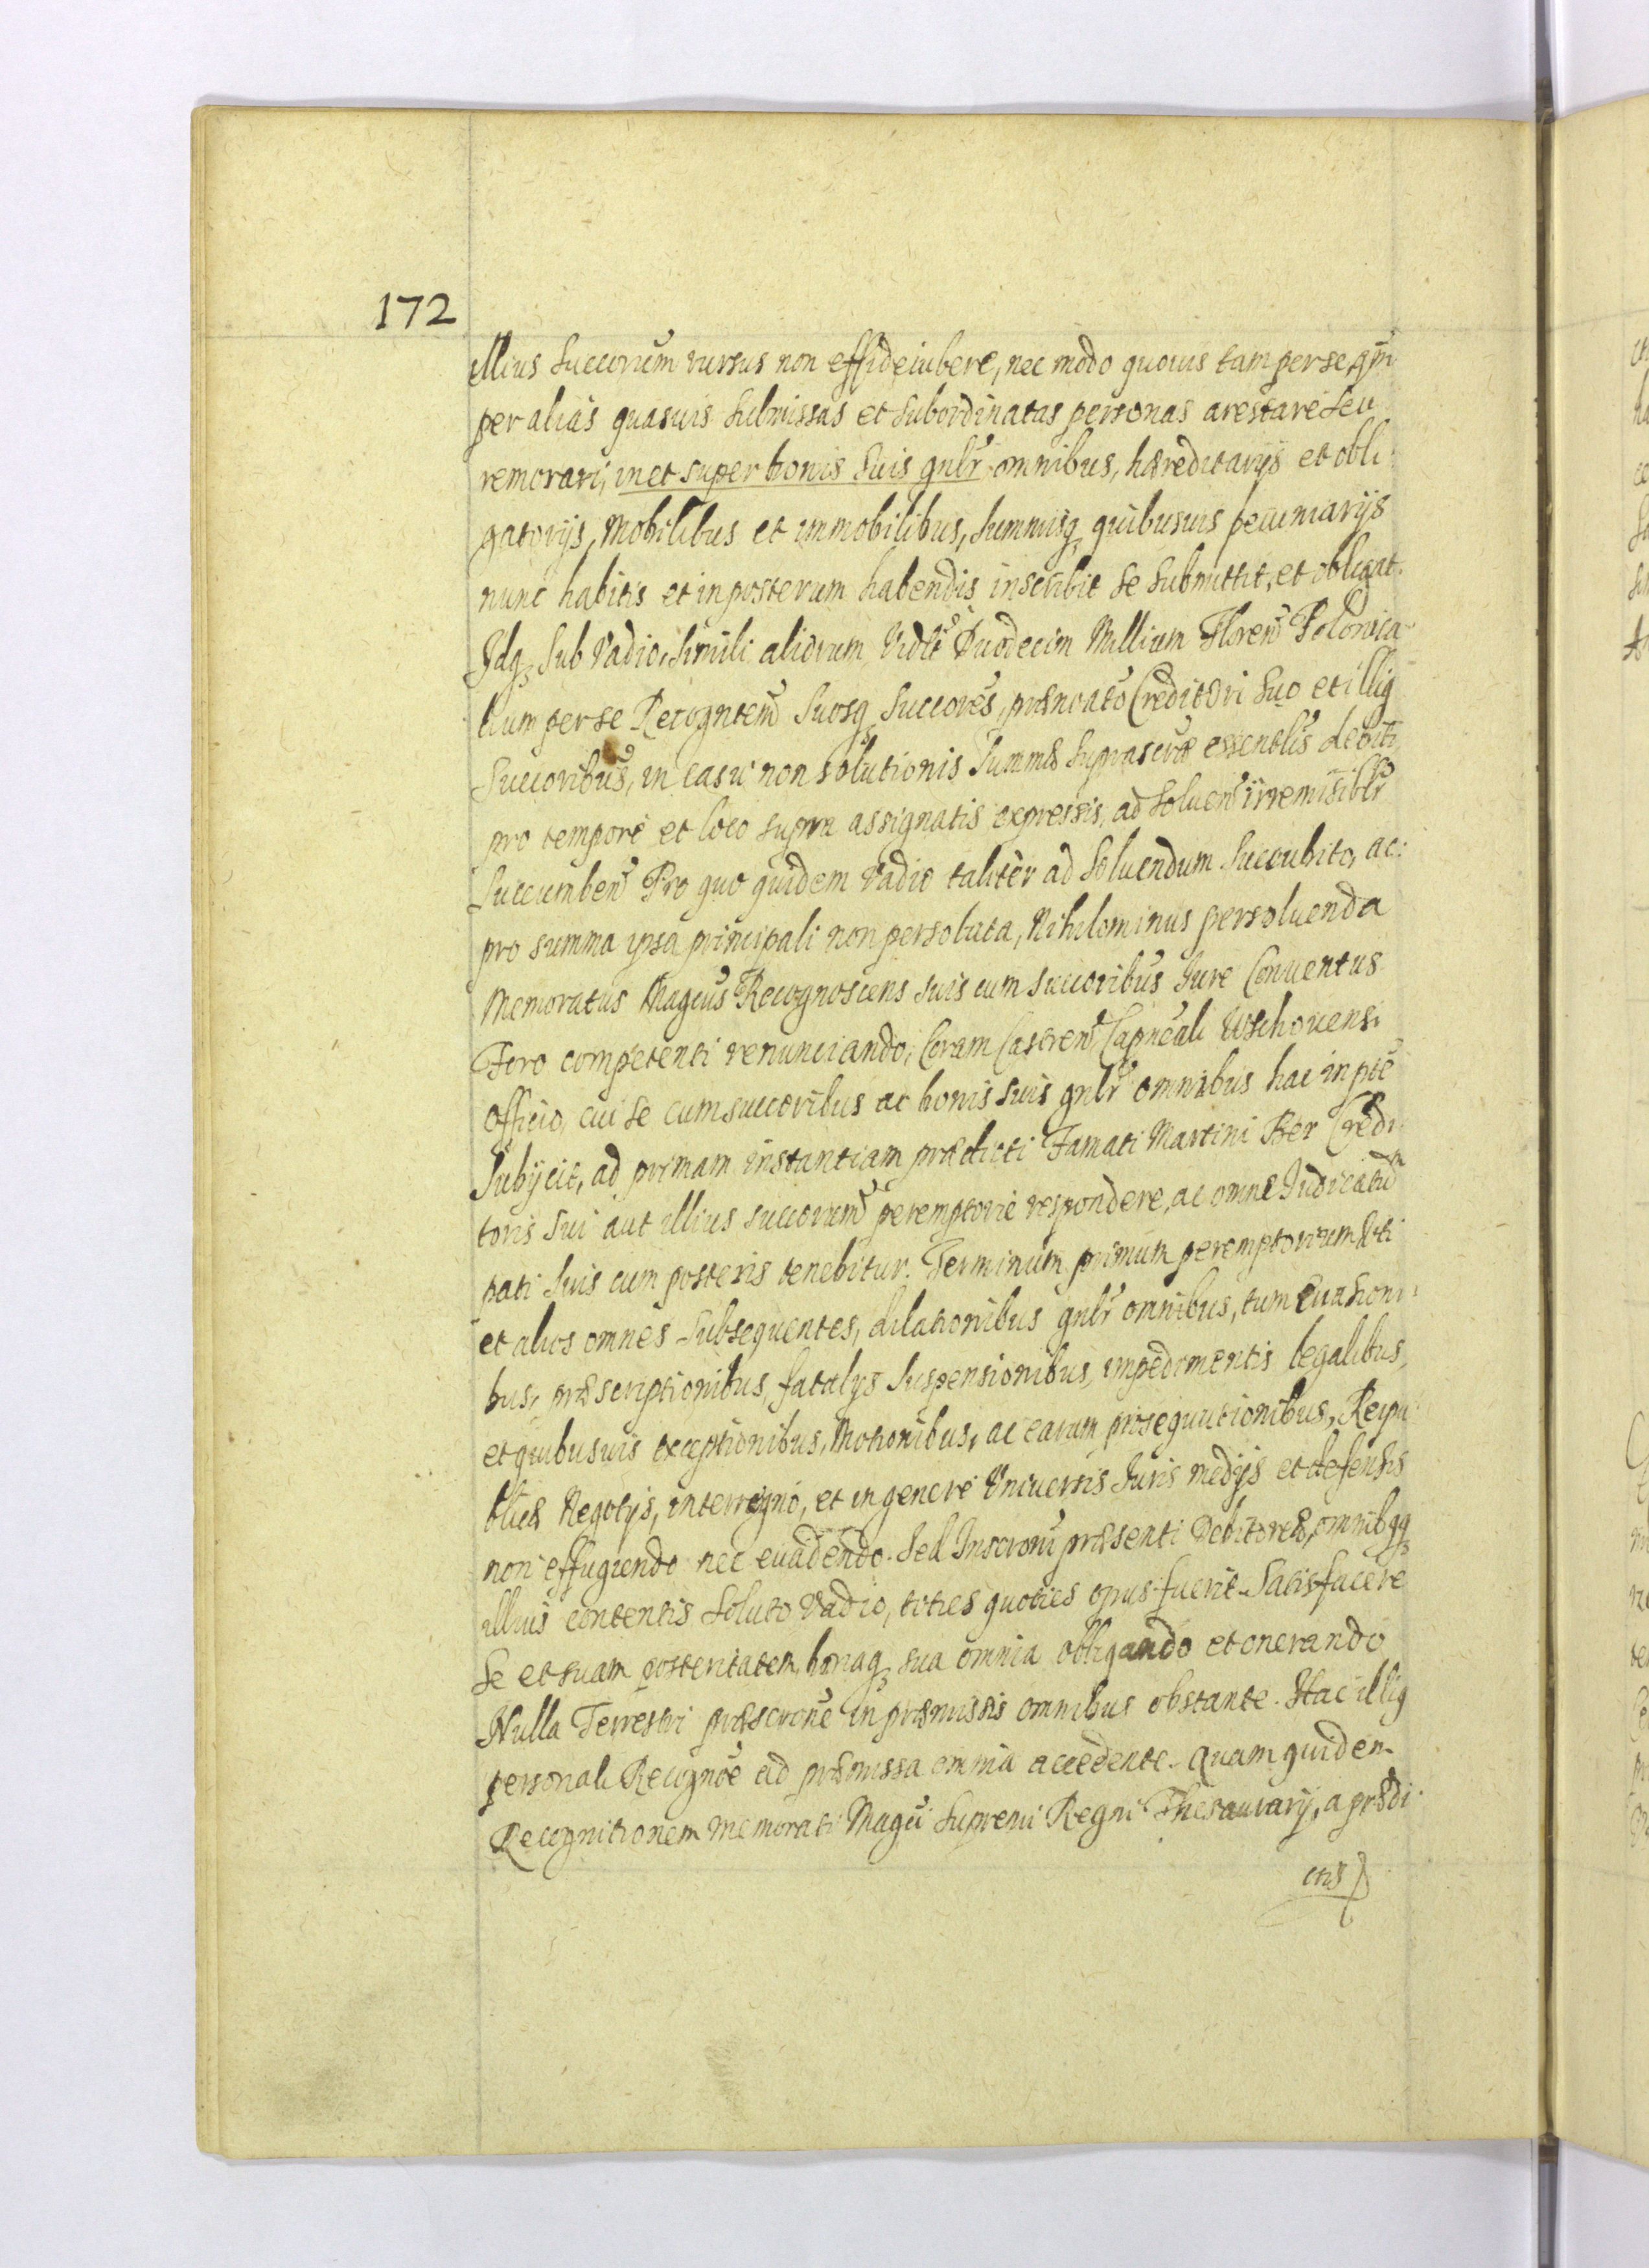 172
illius succorum rursus non effideiubere, nec modo quovis tam per se, qm
per alias quasuis submissas et subordinatas personas arestare seu
remorari, in et super bonis suis gnlr omnibus, hæreditarijs et obli
gatorijs, Mobilibus et immobilibus, summisq quibusuis pecuniarijs
nunc habitis et in posterum habendis inscribit se submittit, et obligat.
Idq sub Vadio simili aliorum Vidlt Duodecim Millium Floren Polonica-
lium per se Recogntem suosq succores, prænoato Creditori suo et illig
succoribus, in casu non solutionis summæ suprascræ essentlis debiti,
pro tempore et loco supra assignatis expressis, ad soluen irremisiblr
succumben Pro quo quidem Vadio taliter ad soluendum succubito, ac
pro summa ipsa principali non persoluta, Nihilominus persoluenda
Memoratus Magcus Recognoscens suis cum succoribus Jure Conuentus
Foro competenti renunciando, Coram Castren Capneali Wschouensi
officio, cui se cum succoribus ac bonis suis gnlr omnibus hac in pte
subijcit, ad primam instantiam prædicti Famati Martini Ber Credi
toris sui aut illius succorum peremptorie respondere, ac omne Iudicatum
pati suis cum posteris tenebitur. Terminum primum peremptorium uti
et alios omnes subsequentes, dilationibus gnlr omnibus, tum Euasioni
bus, præscriptionibus, fatalijs suspensionibus, impedimentis legalibus,
et quibusuis exceptionibus, Motionibus, ac earum prosequutionibus, Reipu
blicæ Negotijs, interregno, et in genere Vniuersis Juris medijs et defensis
non effugiendo nec euadendo. Sed Inscroni præsenti Debitores, omnibqq
illius contentis soluto Vadio, toties quoties opus fuerit satisfacere
se et suam posteritatem bonaq sua omnia obligando et onerando
Nulla Terrestri præscrone in præmissis omnibus obstante. Hac illig
personali Recognoe ad præmissa omnia accedente. Quam quidem
Recognitionem Memorati Magci Supremi Regni Thesaurarij, a prædi
ctis